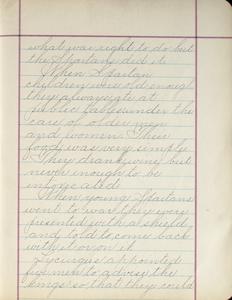 what was right to do but
the Spartans did it.
When Spartan
children were old enough
they always ate at
public tables under the
care of older men
and women. Their
food was very simple
They drank wine but
never enough to be
intoxicated.
When young Spartans
went to war they were
presented with a shield
and told to come back
with it or on it.
Lycurgus appointed
five men to advise the
kings so that they could